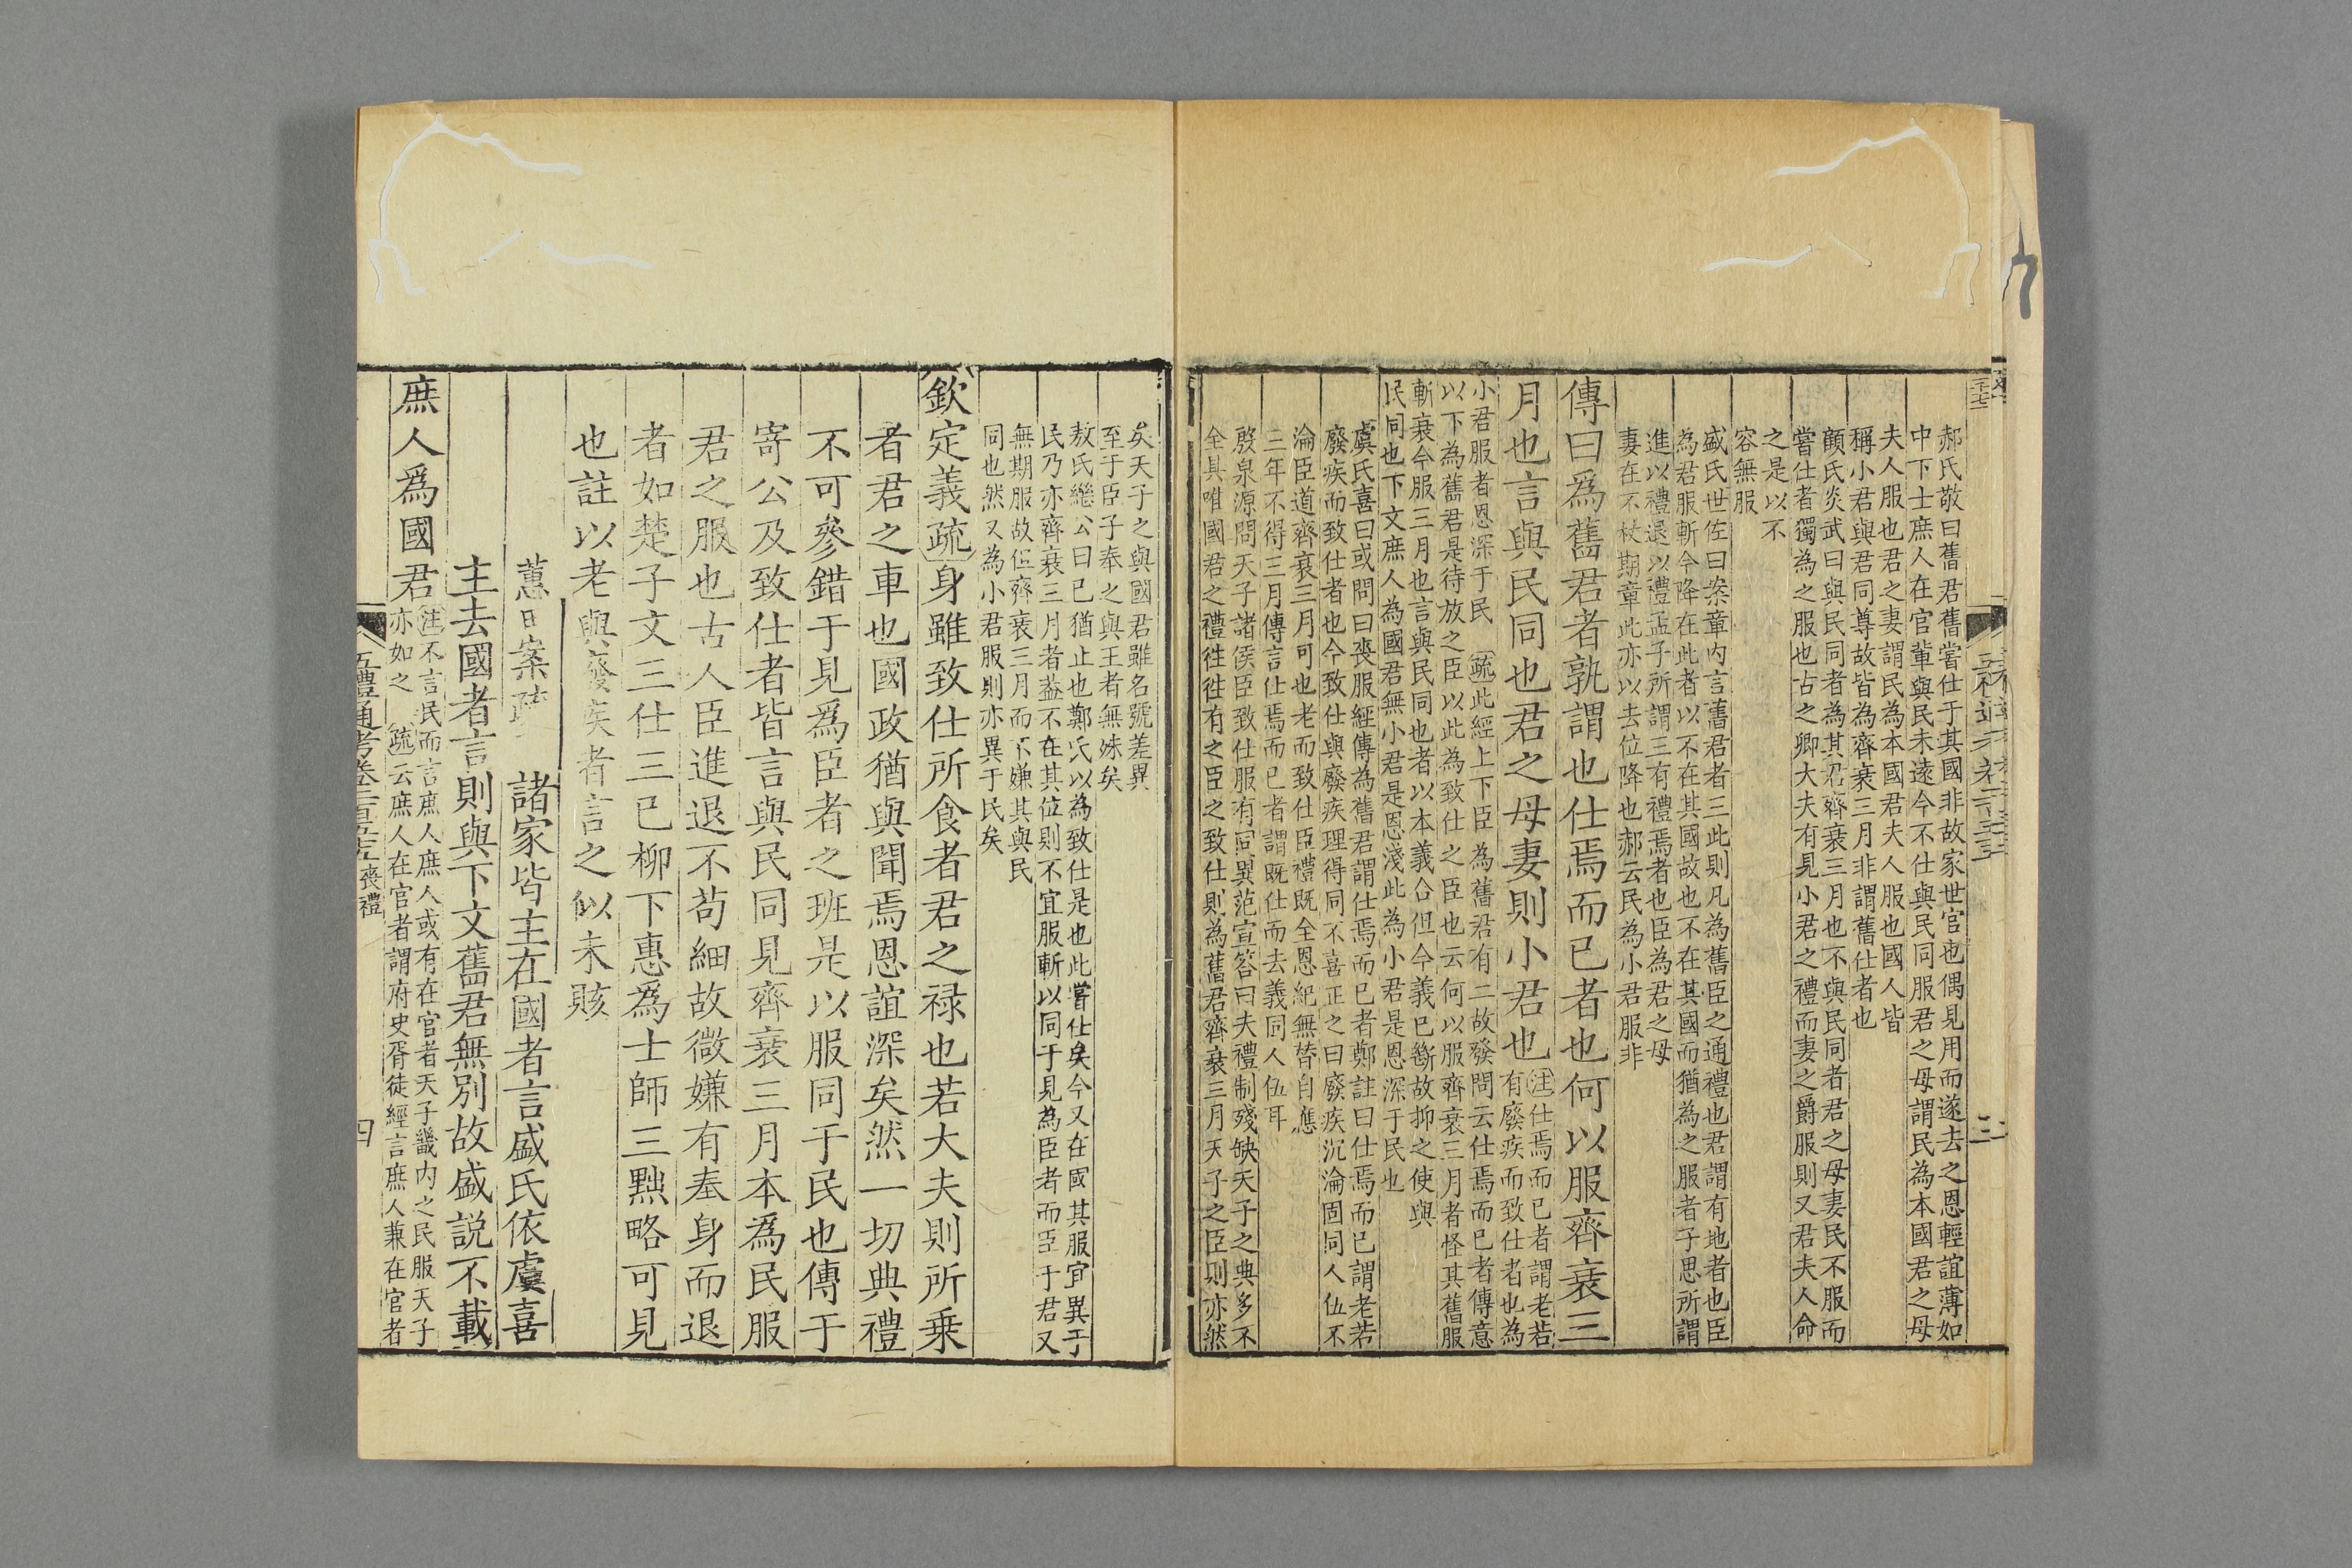 郝氏敬曰舊君舊嘗仕于其國非故家世官也偶見用而遂去之恩輕誼薄如
中下士庶人在官輩與民未遠今不仕與民同服君之母謂民為本國君之母
夫人服也君之妻謂民為本國君夫人服也國人皆
稱小君與君同尊故皆為齊衰三月非謂舊仕者也
顧氏炎武曰與民同者為其君齊衰三月也不與民同者君之母妻民不服而
嘗仕者獨為之服也古之卿大夫有見小君之禮而妻之爵服則又君夫人命
之是以不
容無服
盛氏世佐曰案章內言舊君者三此則凡為舊臣之通禮也君謂有地者也臣
為君服斬今降在此者以不在其國故也不在其國而猶為之服者子思所謂
進以禮退以禮孟子所謂三有禮焉者也臣為君之母
妻在不杖期章此亦以去位降也郝云民為小君服非
傳曰爲舊君者孰謂也仕焉而已者也何以服齊衰三
月也言與民同也君之母妻則小君也
注仕焉而已者謂老若
有廢疾而致仕者也為
小君服者恩深于民
疏此經上下臣為舊君有二故發問云仕焉而已者傳意
以下為舊君是待放之臣以此為致仕之臣也云何以服齊衰三月者怪其舊服
斬衰今服三月也言與民同也者以本義合但今義已斷故抑之使與
民同也下文庶人為國君無小君是恩淺此為小君是恩深于民也
虞氏喜曰或問曰喪服經傳為舊君謂仕焉而已者鄭註曰仕焉而已謂老若
廢疾而致仕者也今致仕與廢疾理得同不喜正之曰廢疾沉淪固同人伍不
淪臣道齊衰三月可也老而致仕臣禮既全恩紀無替自應
三年不得三月傳言仕焉而已者謂既仕而去義同人伍耳
殷泉源問天子諸侯臣致仕服有同異范宣答曰夫禮制殘缺天子之典多不
全具唯國君之禮往往有之臣之致仕則為舊君齊衰三月天子之臣則亦然
矣天子之與國君雖名號差異
至于臣子奉之與王者無殊矣
敖氏繼公曰已猶止也鄭氏以為致仕是也此嘗仕矣今又在國其服宜異于
民乃亦齊衰三月者蓋不在其位則不宜服斬以同于見為臣者而臣于君又
無期服故伍齊衰三月而不嫌其與民
同也然又為小君服則亦異于民矣
欽定義疏身雖致仕所食者君之禄也若大夫則所乗
者君之車也國政猶與聞焉恩誼深矣然一切典禮
不可參錯于見爲臣者之班是以服同于民也傳于
寄公及致仕者皆言與民同見齊衰三月本爲民服
君之服也古人臣進退不苟細故微嫌有奉身而退
者如楚子文三仕三已柳下惠爲士師三黜略可見
也註以老與廢疾者言之似未賅
蕙田案疏
諸家皆主在國者言盛氏依虞喜
主去國者言則與下文舊君無別故盛説不載
庶人爲國君
注不言民而言庶人庶人或有在官者天子畿内之民服天子
亦如之
疏云庶人在官者謂府史胥徒經言庶人兼在官者
五禮通考卷二百五十五喪禮
四